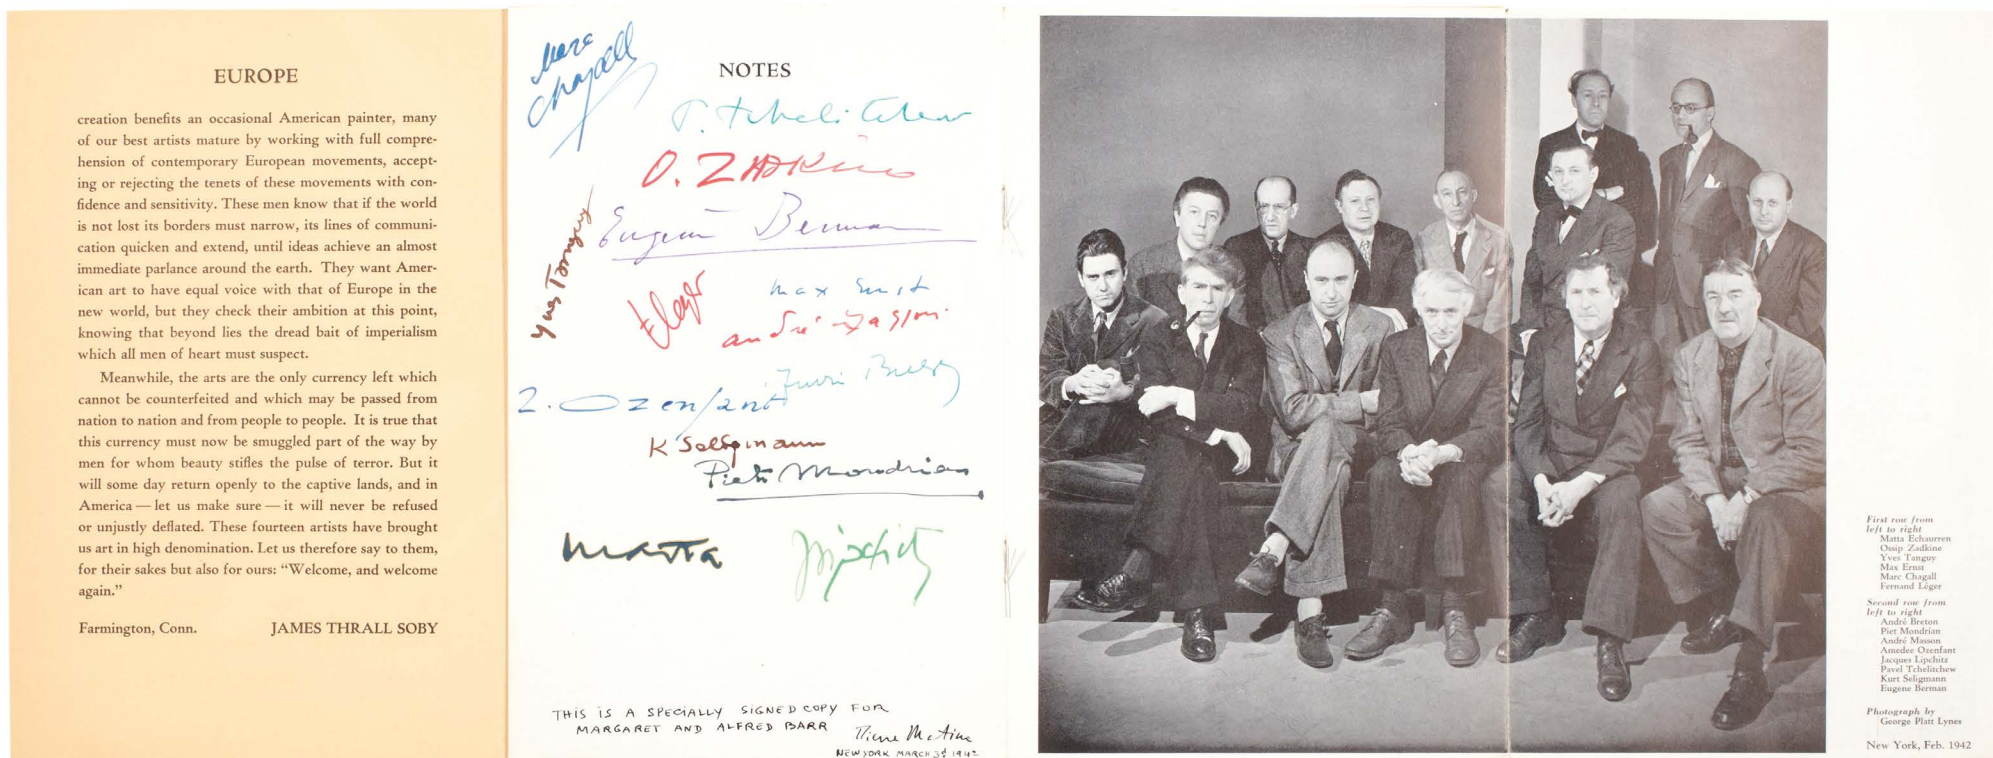 EUROPE
creation benefits an occasional American painter, many
of our best artists mature by working with full compre-
hension of contemporary European movements, accept-
ing or rejecting the tenets of these movements with con-
fidence and sensitivity. These men know that if the world
is not lost its borders must narrow, its lines of communi-
cation quicken and extend, until ideas achieve an almost
immediate parlance around the earth. They want Amer-
ican art to have equal voice with that of Europe in the
new world, but they check their ambition at this point,
knowing that beyond lies the dread bait of imperialism
which all men of heart must suspect.
Meanwhile, the arts are the only currency left which
cannot be counterfeited and which may be passed from
nation to nation and from people to people. It is true that
this currency must now be smuggled part of the way by
men for whom beauty stifles the pulse of terror. But it
will some day return openly to the captive lands, and in
America — let us make sure — it will never be refused
or unjustly deflated. These fourteen artists have brought
us art in high denomination. Let us therefore say to them,
for their sakes but also for ours: “Welcome, and welcome
again.”
Farmington, Conn. JAMES THRALL SOBY
NOTES
Marc
Chagall
P. Tchelitchew
O. ZADKine
Yves Tanguy
Eugene Berman
F Leger
max Ernst
andré Masson
Ozenfant
K Seligmann
Piet Mondrian
Matta
Lipchitz
THIS IS A SPECIALLY SIGNED COPY FOR
MARGARET AND ALFRED BARR
Pierre Matisse
NEW YORK MARCH 3d 1942
First row from
left to right
Matta Echaurren
Ossip Zadkine
Yves Tanguy
Max Ernst
Marc Chagall
Fernand Léger
Second row from
left to right
André Breton
Piet Mondrian
André Masson
Amedee Ozenfant
Jacques Lipchitz
Pavel Tchelitchew
Kurt Seligmann
Eugene Berman
Photograph by
George Platt Lynes
New York, Feb. 1942